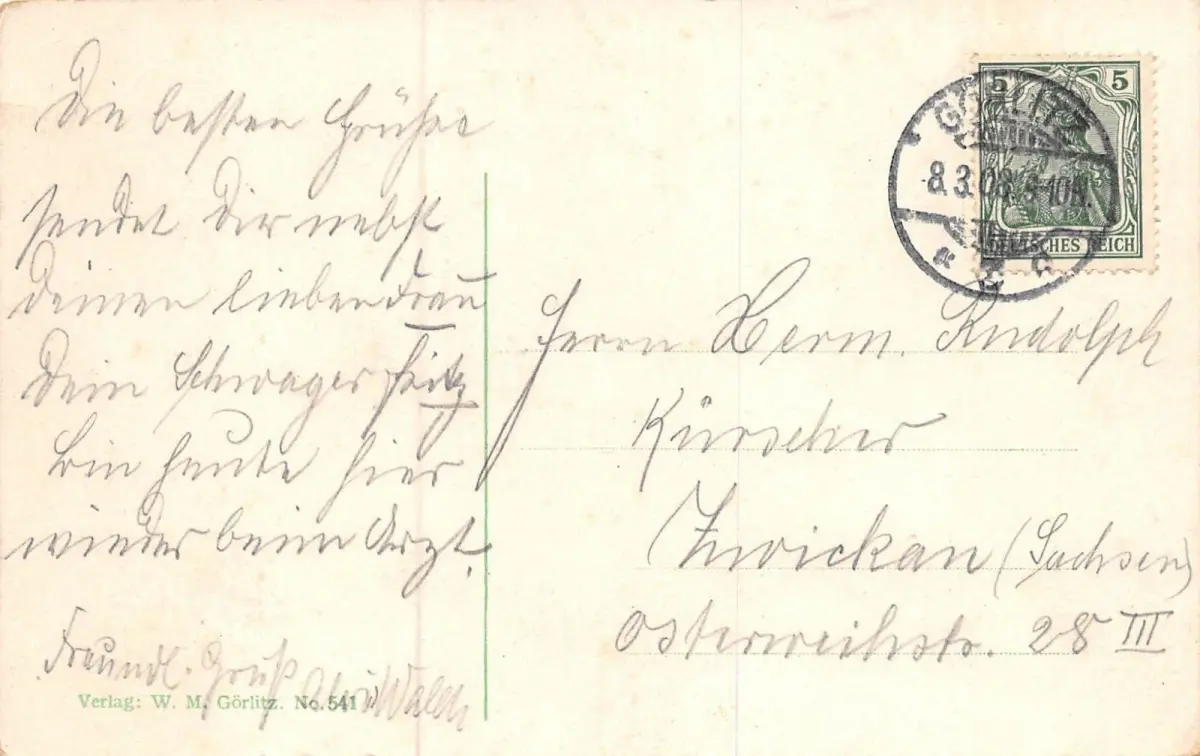 Die besten Grüße
sendet Dir nebst
Deiner lieben Frau
Dein Schwager Fritz
Bin heute hier
wieder beim Arzt.
Freundl. Gruß
Verlag: W. M. Görlitz. No. 541
5 5
GÖRLITZ
8.3.08.
DEUTSCHES REICH
Herrn Herm. Rudolph
Kürscher
Zwickau (Sachsen)
Osterweihstr. 28 III